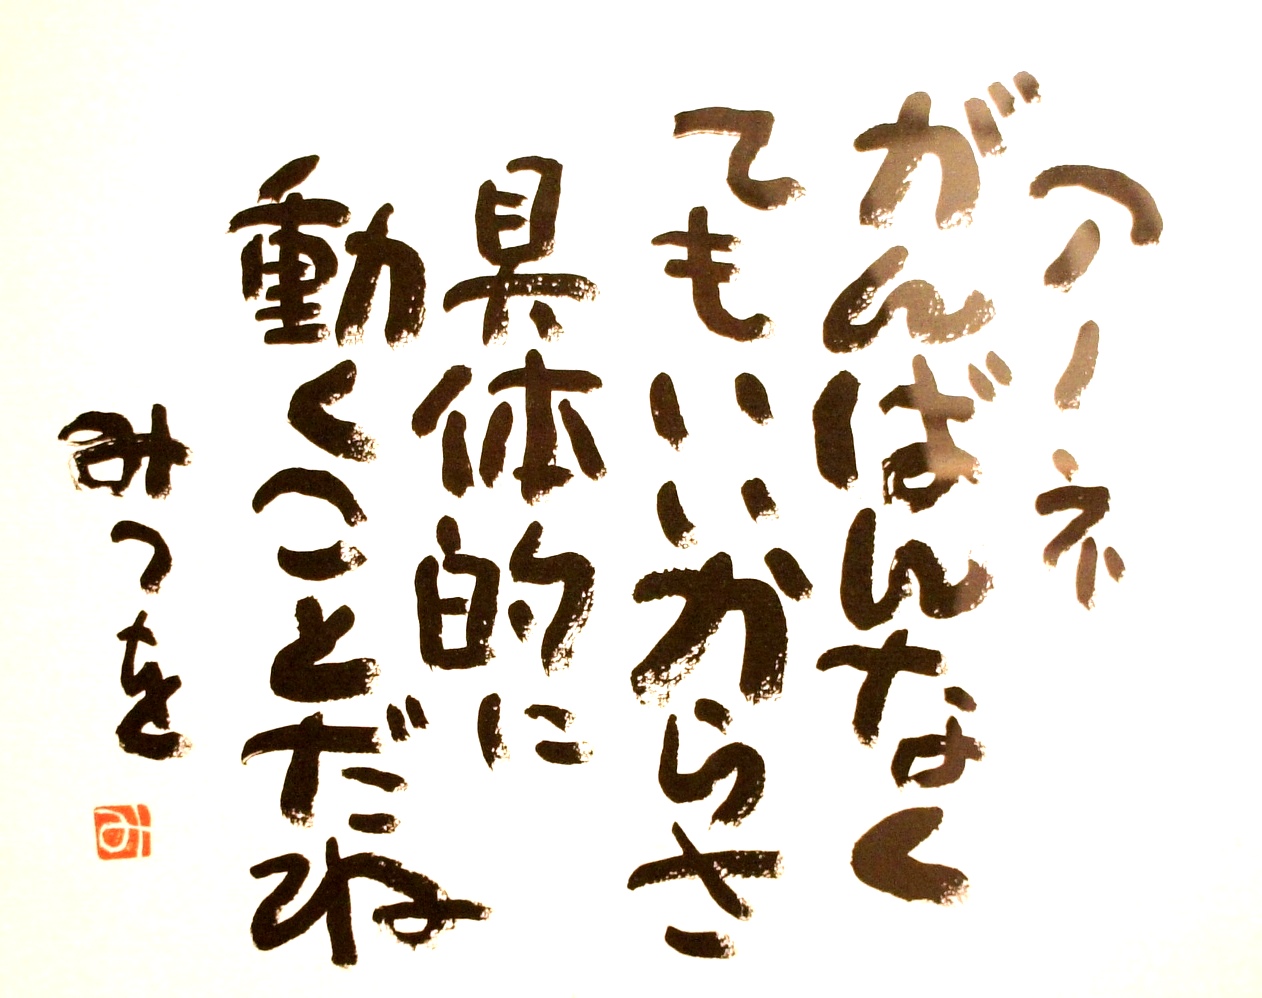 アノーネ
がんばんなく
てもいいからさ
具体的に
動くことだね
みつを
み